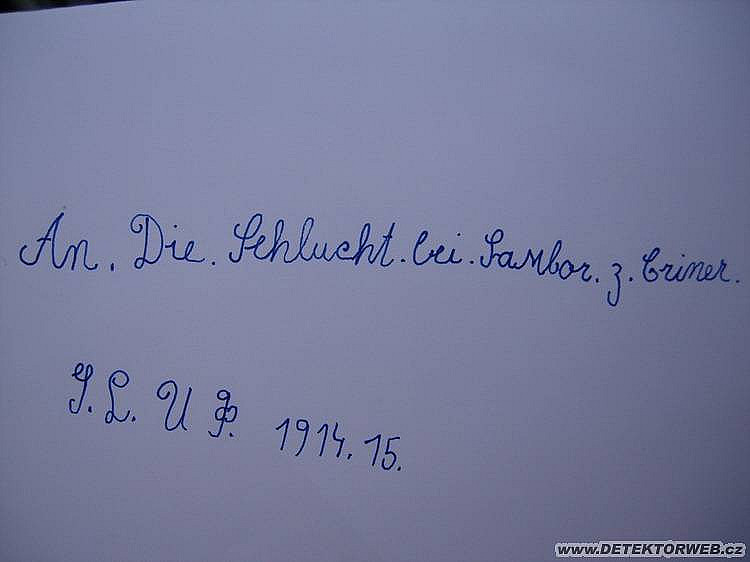 An. Die. Schlucht. bei. Sambor. z. Criner.
I. L. U P. 1914. 15.
www.DETEKTORWEB.cz